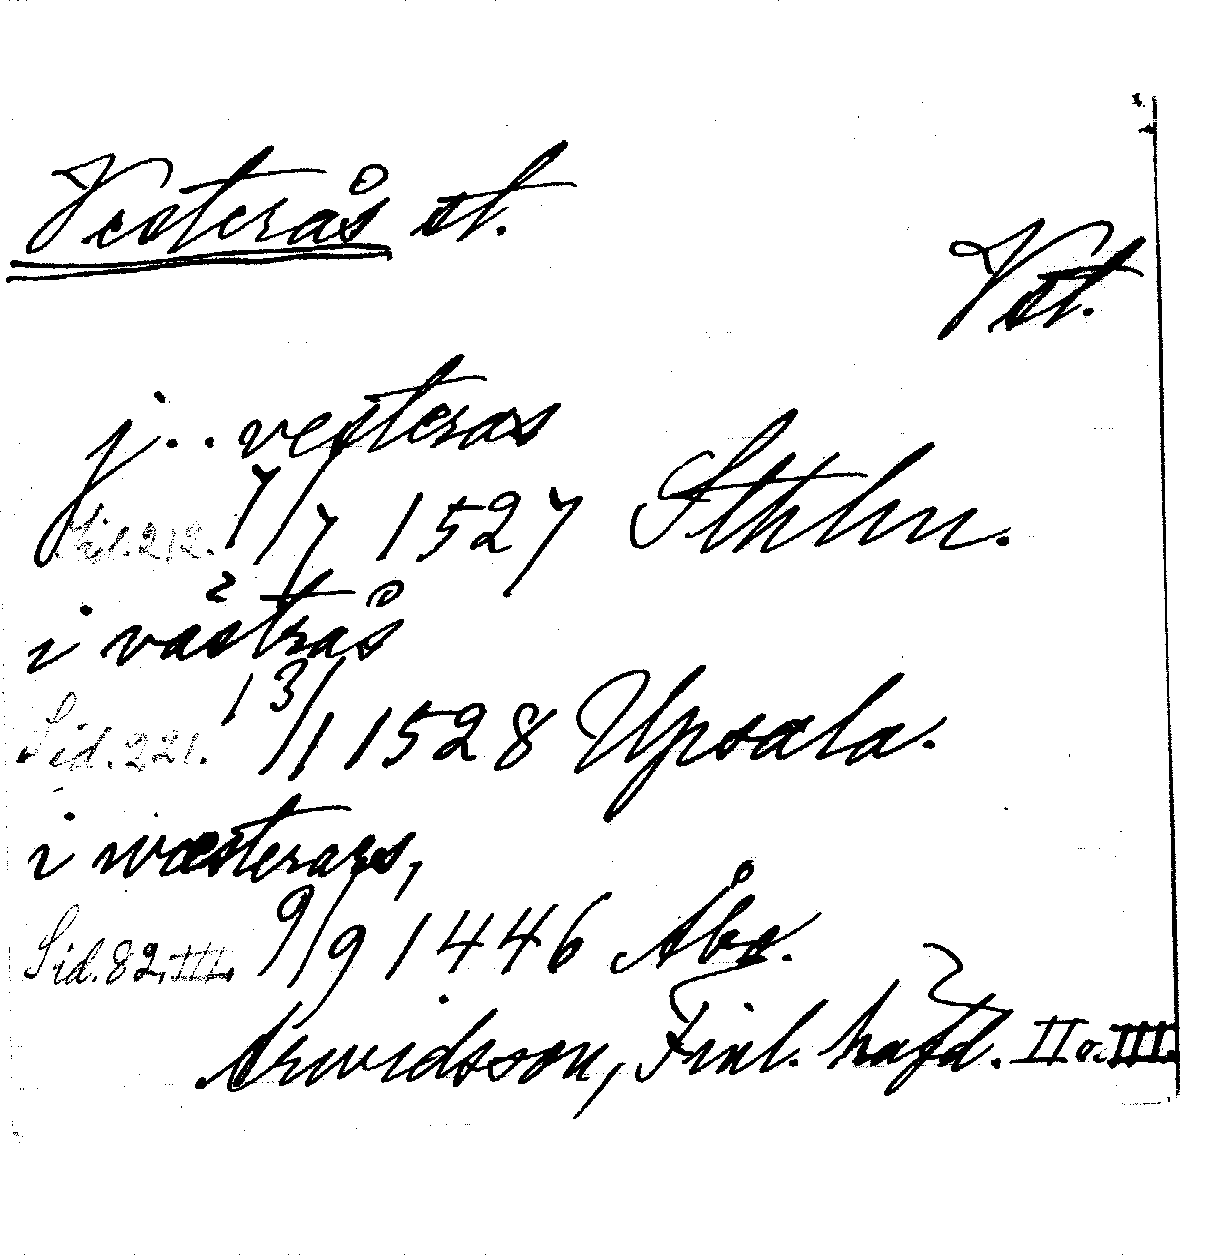 Vesterås st.
Vst.
j.. vesteras
Sid. 212. 7/7 1527 Sthlm.
i västrås
Sid. 221. 13/1 1528 Upsala.
i wæsterars,
Sid. 82, III. 9/9 1446 Åbo.
Arwidsson, Finl. hafd. II o. III.